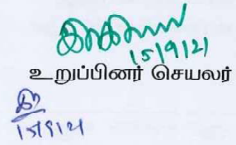 15/9/21
உறுப்பினர் செயலர்
15/9/21